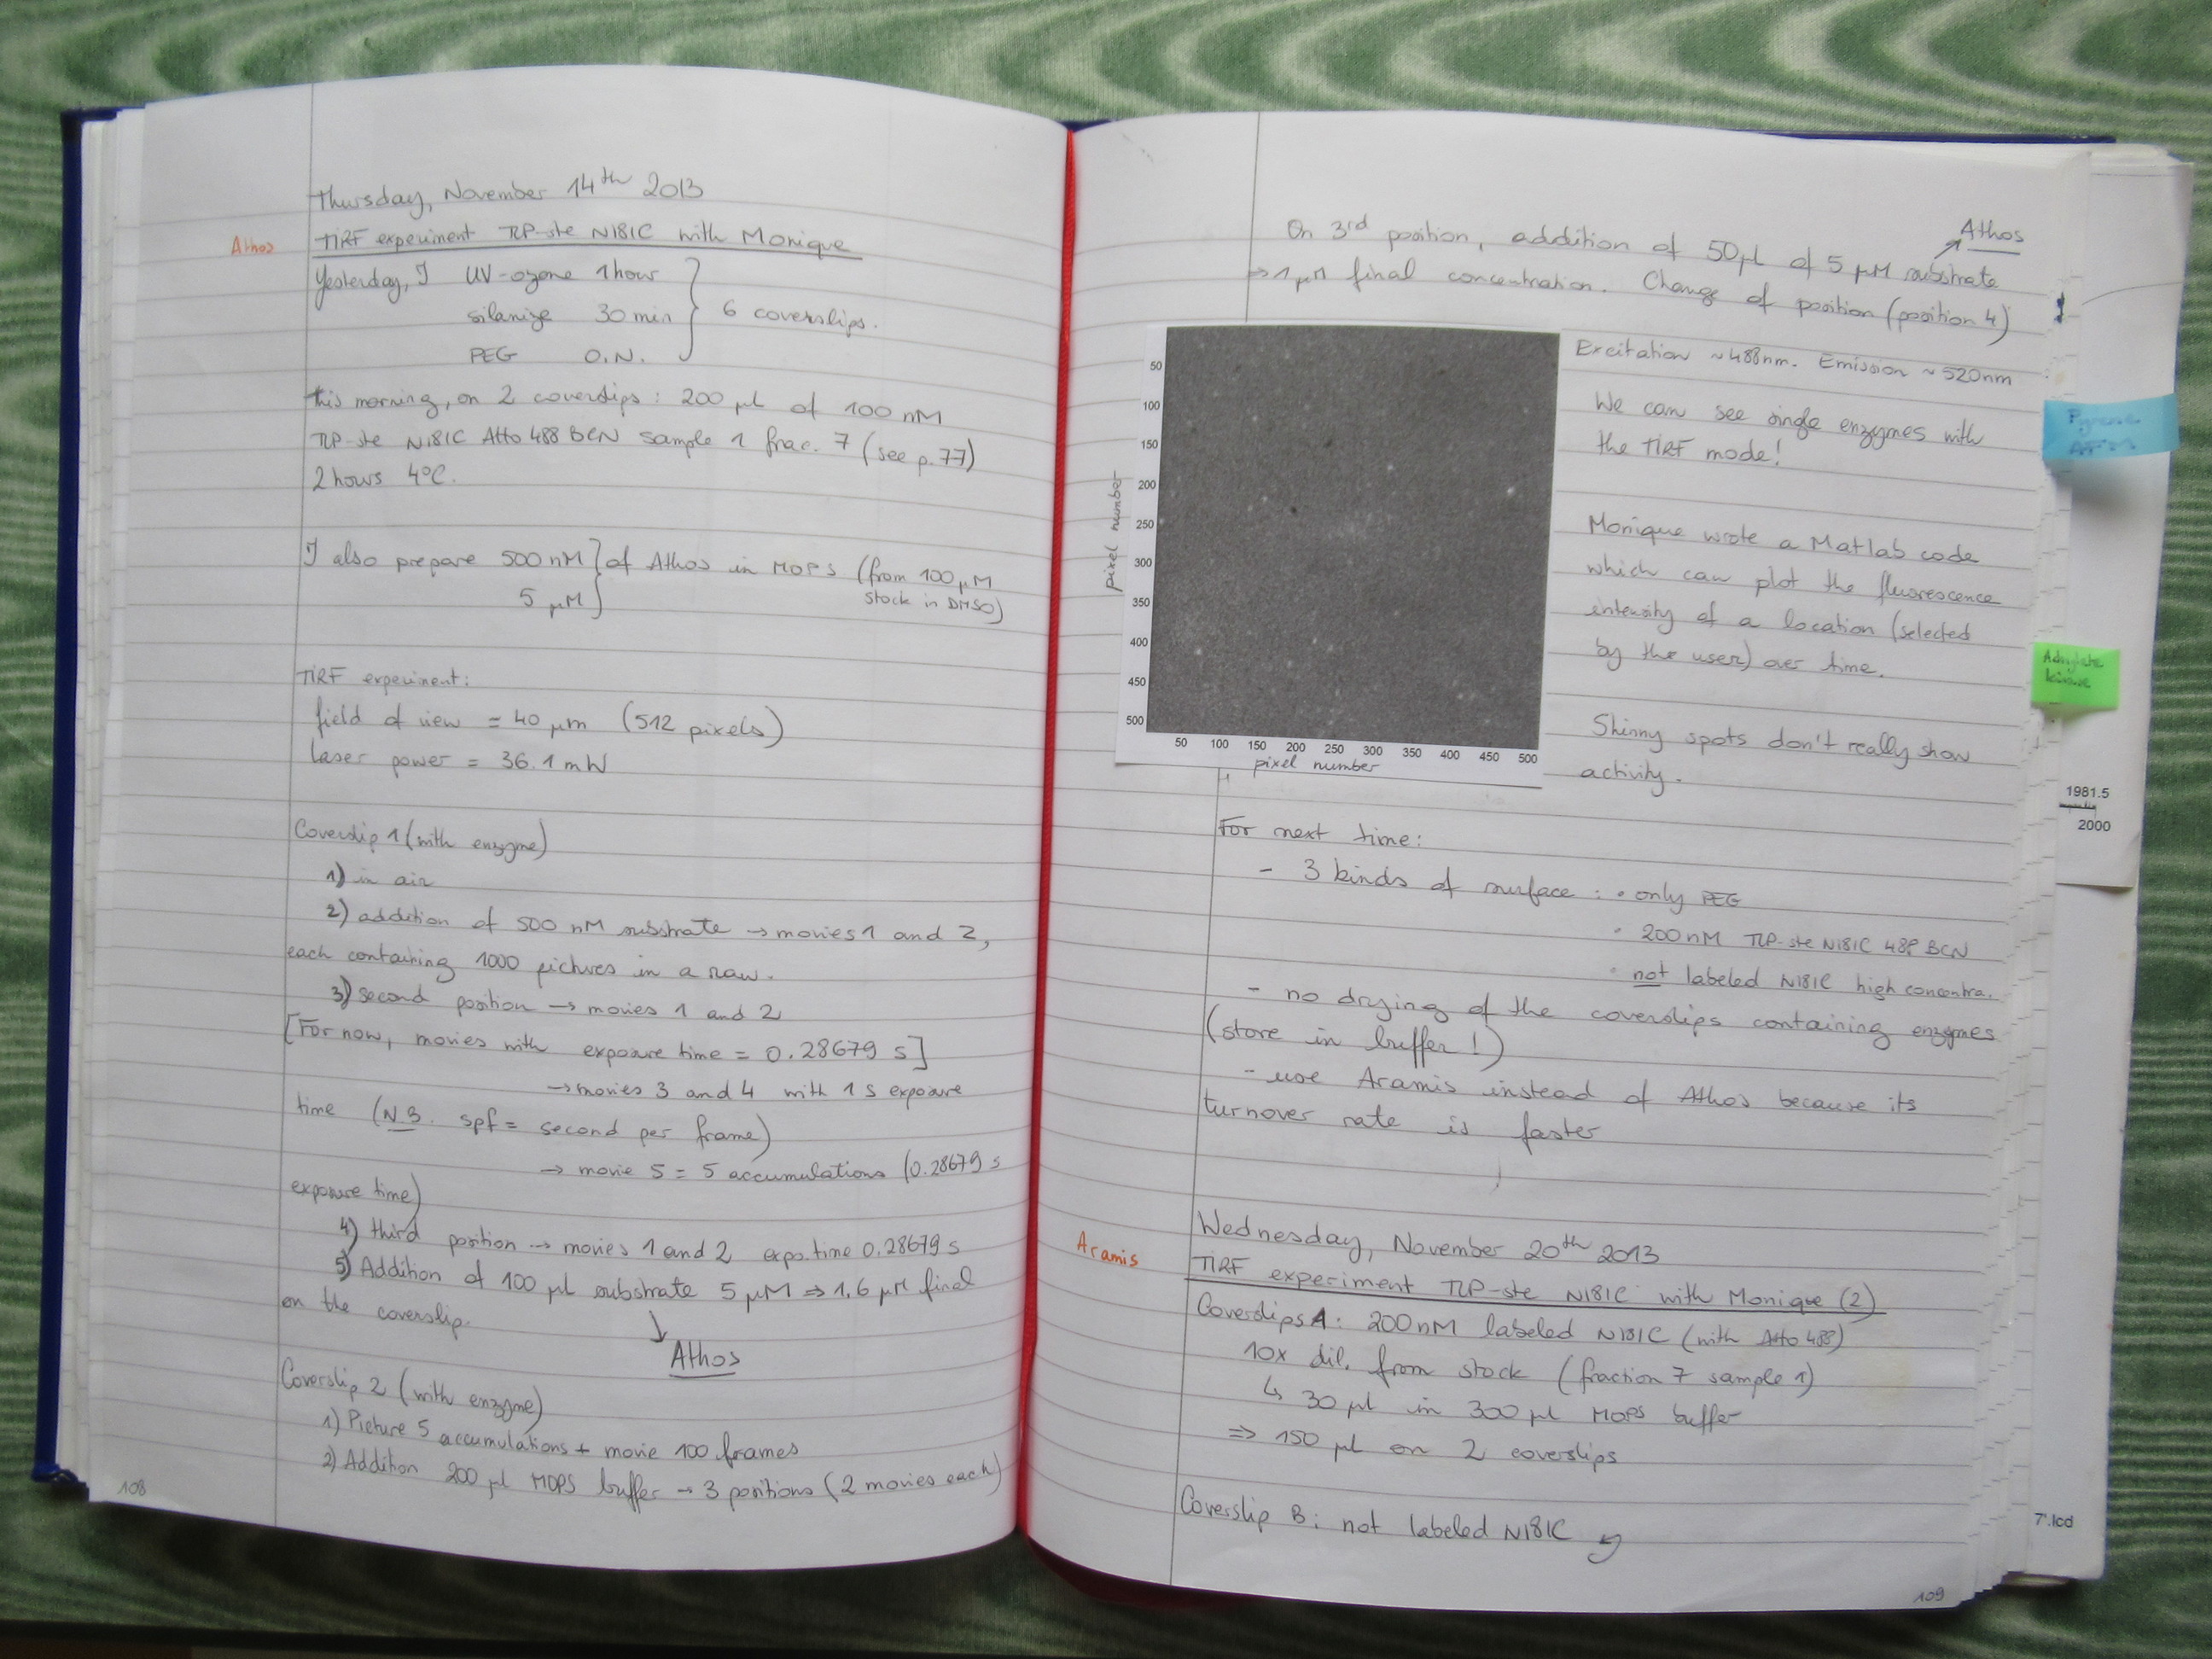 Thursday, November 14th 2013
Athos
TIRF experiment TLP-ste N181C with Monique
Yesterday, I UV-ozone 1 hour
silanize 30 min } 6 coverslips.
PEG O.N.
this morning, on 2 coverslips : 200 µl of 100 nM
TLP-ste N181C Atto 488 BCN sample 1 frac. 7 (see p. 77)
2 hours 4°C.
I also prepare 500 nM } of Athos in MOPS (from 100 µM
5 µM } stock in DMSO)
TIRF experiment:
field of view = 40 µm (512 pixels)
laser power = 36.1 mW
Coverslip 1 (with enzyme)
1) in air
2) addition of 500 nM substrate → movies 1 and 2,
each containing 1000 pictures in a raw.
3) second position → movies 1 and 2
[For now, movies with exposure time = 0.28679 s]
→ movies 3 and 4 with 1 s exposure
time (N.B. spf = second per frame)
→ movie 5 = 5 accumulations (0.28679 s
exposure time)
4) third position → movies 1 and 2 expo. time 0.28679 s
5) Addition of 100 µl substrate 5 µM ⇒ 1.6 µM final
on the coverslip.
↓
Athos
Coverslip 2 (with enzyme)
1) Picture 5 accumulations + movie 100 frames
2) Addition 200 µl MOPS buffer → 3 positions (2 movies each)
108
Athos
On 3rd position, addition of 50 µl of 5 µM substrate
⇒ 1 µM final concentration. Change of position (position 4)
50
100
150
200
250
300
350
400
450
500
pixel number
50 100 150 200 250 300 350 400 450 500
pixel number
Excitation ~ 488 nm. Emission ~ 520 nm
We can see single enzymes with
the TIRF mode!
Monique wrote a Matlab code
which can plot the fluorescence
intensity of a location (selected
by the user) over time.
Shinny spots don't really show
activity.
For next time:
- 3 kinds of surface : • only PEG
• 200 nM TLP-ste N181C 488 BCN
• not labeled N181C high concentra.
- no drying of the coverslips containing enzymes
(store in buffer !)
- use Aramis instead of Athos because its
turnover rate is faster
Wednesday, November 20th 2013
Aramis
TIRF experiment TLP-ste N181C with Monique (2)
Coverslips A : 200 nM labeled N181C (with Atto 488)
10x dil. from stock (fraction 7 sample 1)
↳ 30 µl in 300 µl MOPS buffer
⇒ 150 µl on 2 coverslips
Coverslip B : not labeled N181C
109
Adenylate
kinase
1981.5
2000
7'.lcd